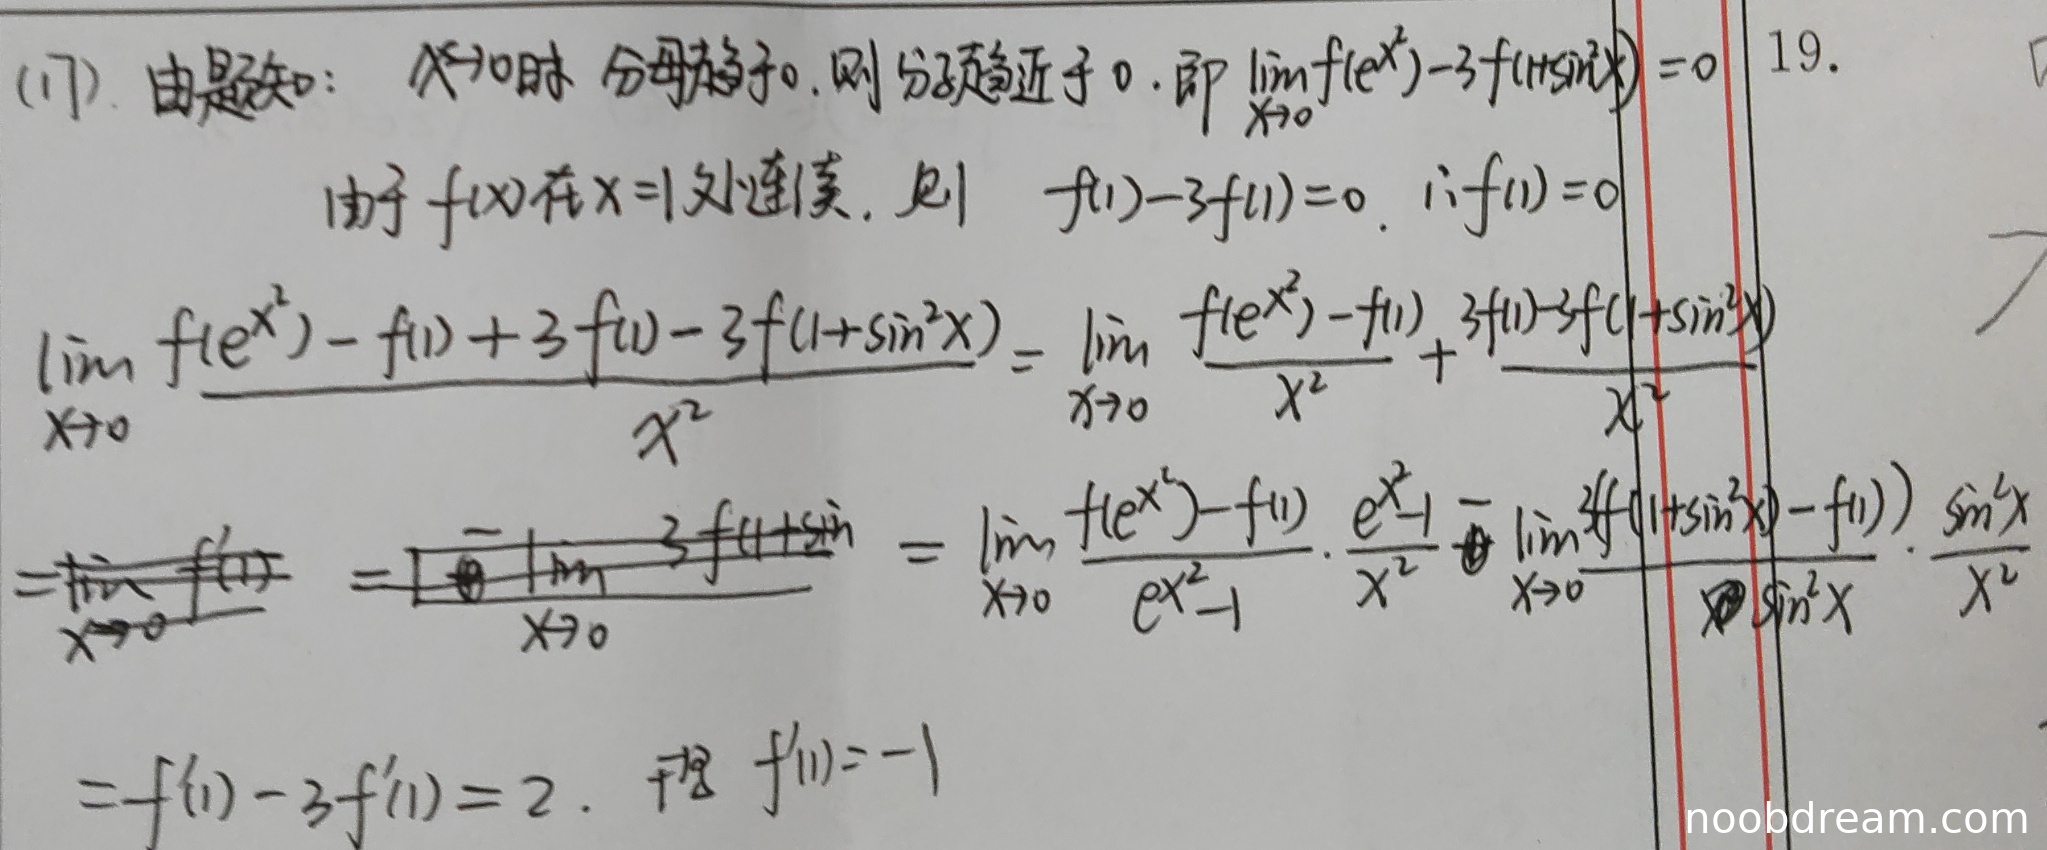 (17). 由题知: x→0时 分母趋于0,则分子趋近于0.即 lim_{x→0} f(e^{x²})-3f(1+sin²x)=0
19.
由于f(x)在x=1处连续,则 f(1)-3f(1)=0. ∴f(1)=0
lim_{x→0} (f(e^{x²})-f(1)+3f(1)-3f(1+sin²x))/x² = lim_{x→0} (f(e^{x²})-f(1))/x² + (3f(1)-3f(1+sin²x))/x²
= lim_{x→0} (f(e^{x²})-f(1))/(e^{x²}-1) · (e^{x²}-1)/x² - lim_{x→0} 3(f(1+sin²x)-f(1))/sin²x · sin²x/x²
=f'(1)-3f'(1)=2. f'(1)=-1
noobdream.com